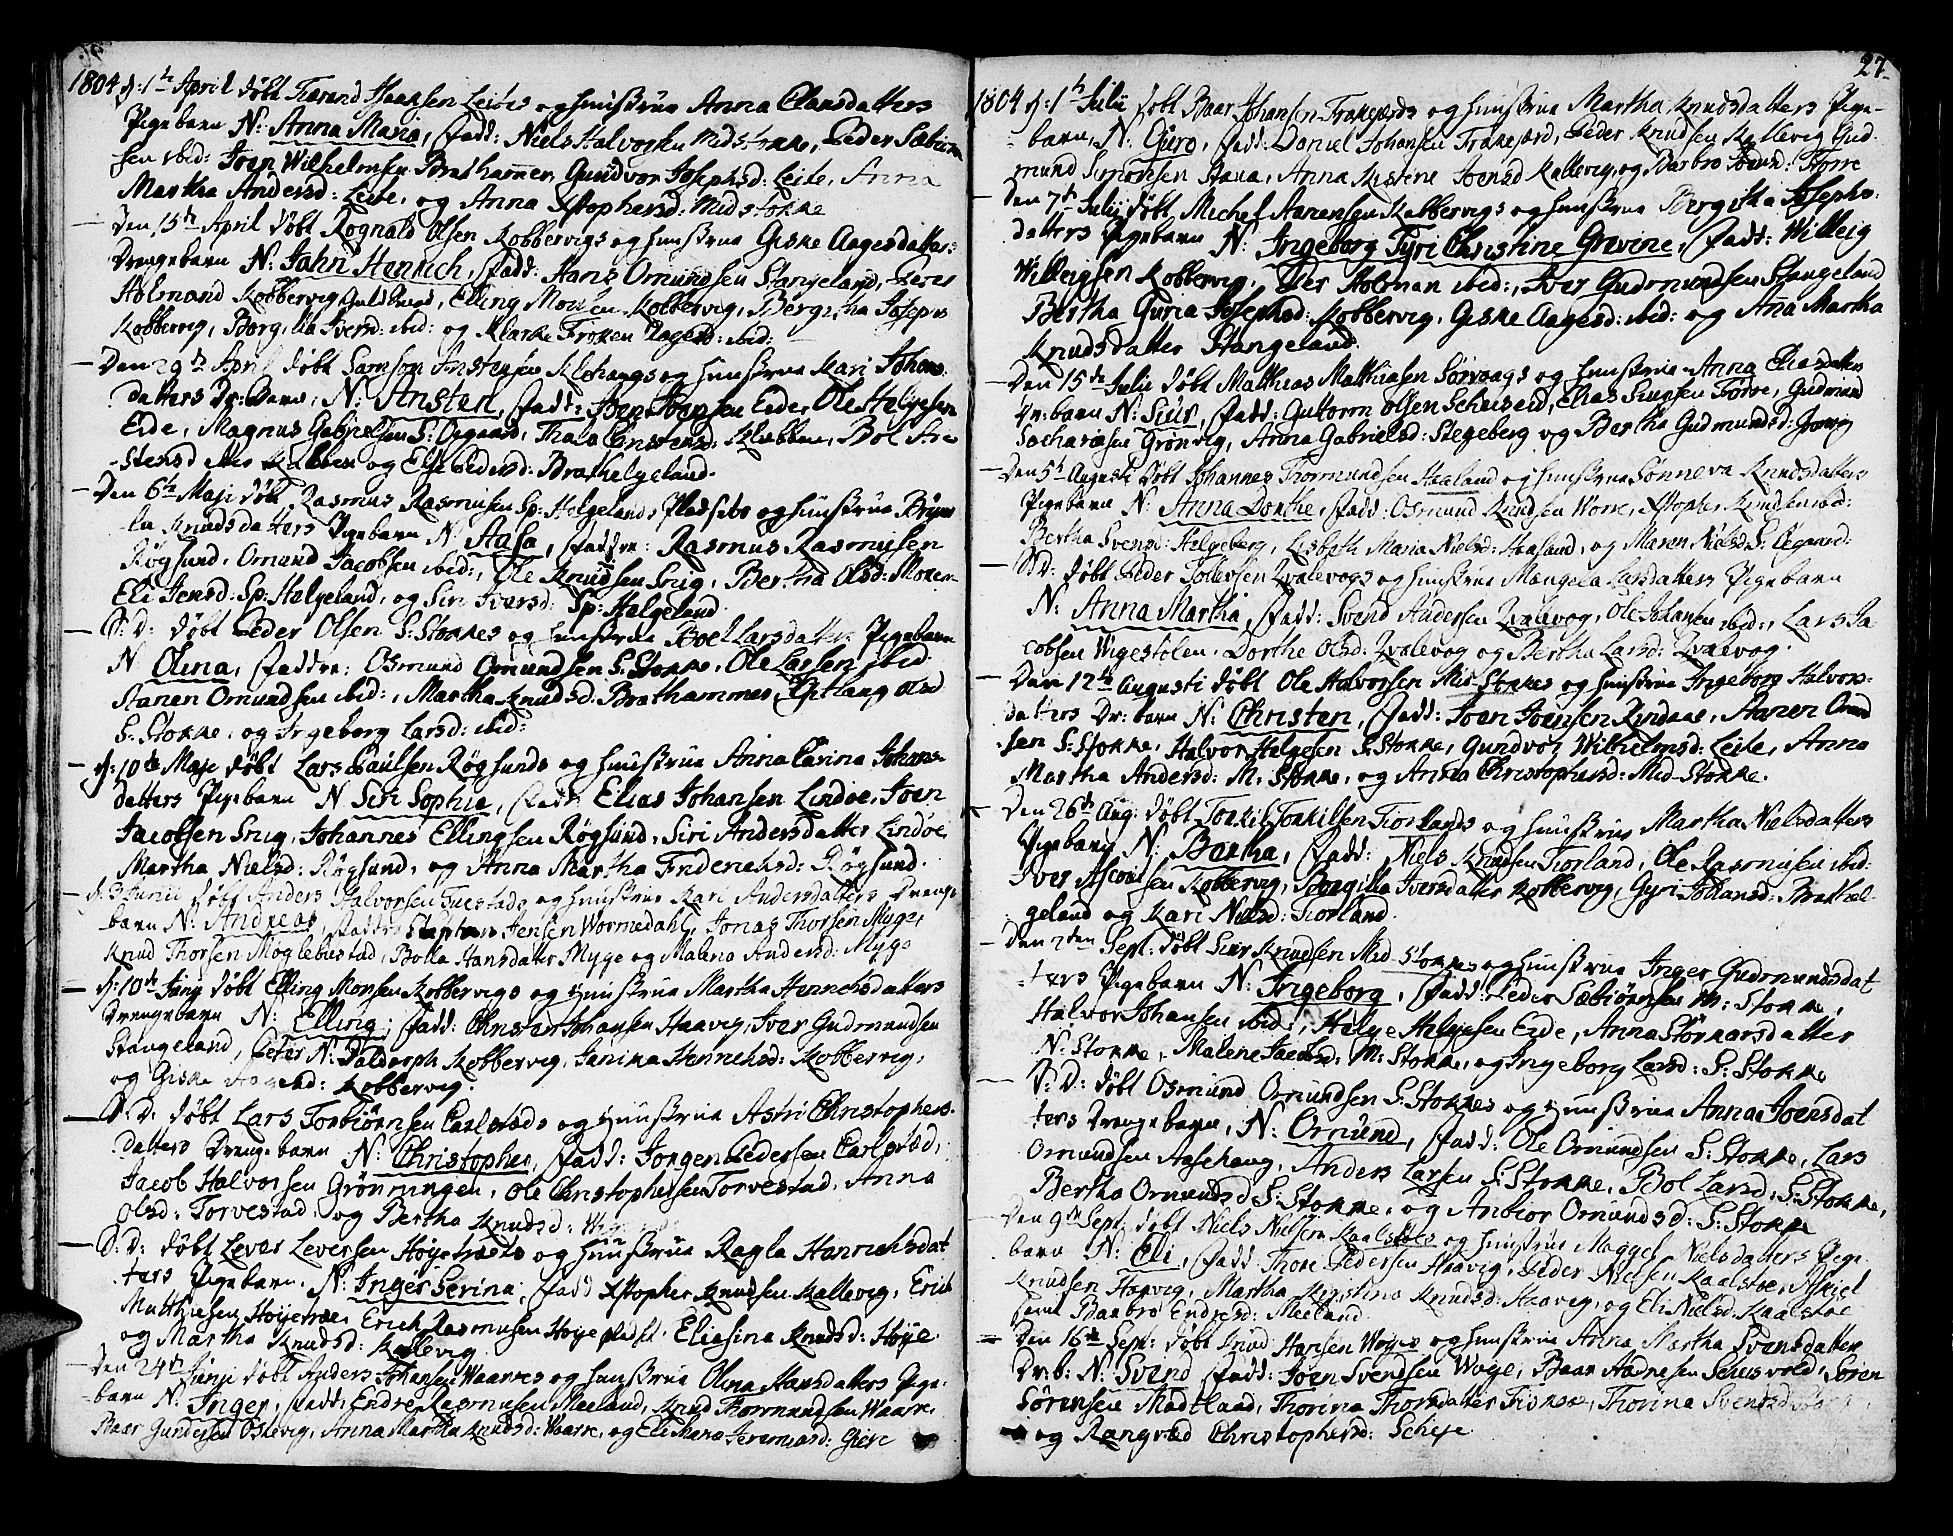 1804 d: 1te April døbt Hansen Leiöes og hunstrue Anna Clausdatters
Pigebarn N: Anna Maria, fadd: Niels Halvorsen Midstokke, Peder Sæbiörn
sen ibid: Joen Wilhelmsen Brathammer, Gundvor Josephsd: Leite, Anna
Martha Andersd: Leite, og Anna Xstophersd: Midstokke
Den 15de April døbt Rognald Olsen Kobbervigs og hunstrue Giske Aagesdatters
Drengebarn N: Jahn Henrich, fadd: Hans Omundsen Stangeland, Peter
Holmand Kobbervig, Elling Monsen Kobbervig, Bergitha Joseps
Kobbervig, Borgilla Iversd: ibid: og Froken Aagesd: ibid:
Den 29de April døbt Samson Anstensen Klohaugs og hunstrue Kari Johans
datters Dr: Barn, N: Ansten, fadd: Joen Joensen Eide, Ole Helgesen
Eide, Magnus Gabrielsen S: Oegaard, Anstensd: Klubben, Bol An
stensdatter Klubben og Else Pedersd: Brathelgeland.
Den 6te Maji døbt Rasmus Rasmusen Sp: Helgelands Pladsebo og hunstrue
la Knudsdatters Pigebarn N: Aasa, faddre: Rasmus Rasmusen
Røgsund, Omund Jacobsen ibid:, Ole Knudsen Snig, Bertha Olsd:
Eli Jensd: Sp: Helgeland, og Siri Iversd: Sp: Helgeland
S: D: døbt Peder Olsen S: Stokkes og hunstrue Larsdatters Pigebarn
N Olina, faddre: Osmund Omundsen S: Stokke, Ole Larsen ibid.
Aanen Omundsen ibid:, Martha Knudsd: Brathammer, Olsd
S: Stokke, og Ingeborg Larsd: ibid:
d: 10de Maji døbt Lars Paulsen Røgsunds og hunstrue Anna Carina Johans-
datters Pigebarn N Siri Sophie, fadd: Elias Johansen Lindöe, Joen
Jacobsen Snig, Johannes Ellingsen Røgsund, Siri Andersdatter Lindöe
Martha Nielsd: Røgsund, og Anna Martha Friderichsd: Røgsund.
d. 3 Junii døbt Anders Halvorsen Tuestads og hunstrue Kari Andersdatters Drenge
barn N: Andreas, faddre Jensen Wormedahl, Jonas Thorsen Myge,
Knud Thorsen Møglebustad, Bolla Hansdatter Myge og Malena Andersd: Myge
d: 10de Junj døbt Elling Monsen Kobbervigs og Hunstrue Martha Henrichsdatters
Drengebarn N: Elling, fadd: Christen Johansen Haavig, Iver Gudmundsen
Stangeland, Peter N: Valdorph Kobbervig, Janina Henrichsd: Kobbervig,
og Giske Aagesd: Kobbervig.
S: D: døbt Lars Torbiörnsen Carlstads og Hunstrue Astri Christophers-
datters Drengebarn N: Christopher, fadd: Jörgen Pedersen Carlstad,
Jacob Halvorsen Grönningen, Ole Christophersen Torvestad, Anna
Olsd: Torvestad, og Bertha Knudsd:
S: D: døbt Lever Leversen Höyetræts og Hunstrue Ragla Hanrichsdat
ters Pigebarn, N: Inger Serina, fadd Xstopher Knudsen Kallevig, Erich
Matthiesen Höyetræe, Erich Rasmusen Höye pladst. Eliesina Knudsd: Höye
og Martha Knudsd: Kallevig
Den 24de Junji døbt Anders Johansen Waarres og hunstrue Olina Hansdatters Pige-
barn N: Inger, fadd: Endre Rasmusen Meeland, Knud Thormundsen Waare,
Baar Gundersen Ostevig, Anna Martha Knudsd: Waare, og Eli Maria
27.
1804 d: 1te Julii døbt Baar Johansen Frakefærds og hunstrue Martha Knudsdatters Pige-
barn, N: Guro, fadd: Daniel Johansen Frakefærd, Peder Knudsen Kallevig Gud
mund Simonsen Stava, Anna Kistine Joensd Kallevig, og Barbro
Den 7de Julij døbt Michel Aanensen Kobbervigs og hunstrue Bergitha Josephs-
datters Pigebarn N: Ingeborg Tyri Christine Grevine, fadd: Willeig
Willeigsen Kobbervig, Peter Holman ibid:, Iver Gudmundsen Stangeland
Bertha Guria Josephsd: Kobbervig, Giske Aagesd: ibid: og Ana Martha
Knudsdatter Stangeland.
Den 15de Julii døbt Mathias Mathiasen Sörvaags og hunstrue Anna Eliasdatters
Dr: barn N: Siur, fadd: Guttorm Olsen Scheiseid, Elias Siursen Torve, Gudmund
Sachariasen Grönvig, Anna Gabrielsd: Stegeberg og Bertha Gudmundsd:
Den 5te Augusti Døbt Johannes Tormundsen Haaland og hunstrue Sönneva Knudsdatters
Pigebarn N: Anna Dorthe, fadd: Osmund Knudsen Worre, Xstopher Knudsen ibid:
Bertha Svensd: Helgeberg, Lisbeth Maria Nielsd: Haaland, og Maren Nielsd: S: Oegaard:
S: D: døbt Peder Tollevsen Qvalevogs og hunstrue Mangela Larsdatters Pigebarn
N: Anna Martha, fadd: Svend Andersen Qvalevog, Ole Johansen ibid:, Lars Ja
cobsen Wigestölen, Dorthe Olsd: Qvalevog og Bertha Larsd: Qvalevog.
Den 12te Augusti døbt Ole Halvorsen Mid-Stokkes og hunstrue Ingeborg Halvors-
datters Dr: barn N: Christen, fadd: Joen Joensen Ryndaas, Aanen Omund
sen S: Stokke, Halvor Helgesen S: Stokke, Gundvor Wilhelmsd: Leite, Anna
Martha Andersd: M: Stokke, og Anna Christophersd: Mid-Stokke.
Den 26de Aug: døbt Torkil Torkilsen Fiorlands og hunstrue Martha Nielsdatters
Pigebarn N: Bertha, fadd: Niels Knudsen Fiorland, Ole Rasmusen ibid:
Iver Kobbervig, Borgilla Iversdatter Kobbervig, Gyri Johansd: Brathel-
geland og Kari Nielsd: Fiorland
Den 2den Sept: døbt Siur Knudsen Mid-Stokkes og hunstrue Inger Gudmundsdat
ters Pigebarn N: Ingeborg, fadd: Peder Sæbiörnsen M: Stokke,
Halvor Johansen ibid:, Helge Helgesen Eide, Anna Störkarsdatter
N: Stokke, Malene Jacobsd: M: Stokke, og Ingeborg Larsd: S: Stokke
S: D: døbt Osmund Omundsen S: Stokkes og Hunstrue Anna Joensdat
ters Drengebarn, N: Omund, fadd: Ole Omundsen S: Stokke, Lars
Omundsen Aaschaug, Anders Larsen S: Stokke, Bol Larsd: S: Stokke,
Bertha Omundsd S: Stokke, og Anbior Omundsd: S: Stokke
Den 9de Sept: døbt Niels Nielsen Kaalstöes og hunstrue Maggel Nielsdatters Pige-
barn N: Eli, fadd: Thore Pedersen Haavig, Peder Nielsen Kaalstöe
Knudsen Haavig, Martha Kirstina Knudsd: Haavig, og Eli Nielsd: Kaalstöe
samt Baabro Endresd: Meeland
Den 16de Sept: døbt Knud Hansen Woyes og hunstrue Anna Martha Svensdatters
Dr: b: N: Svend fadd: Joen Svendsen Woye, Baar Aadnesen Scheisvold, Sören
Sörensen Madtland, Thorina Thorsdatter, Thorina Svensd:
og Rangved Christophersd: